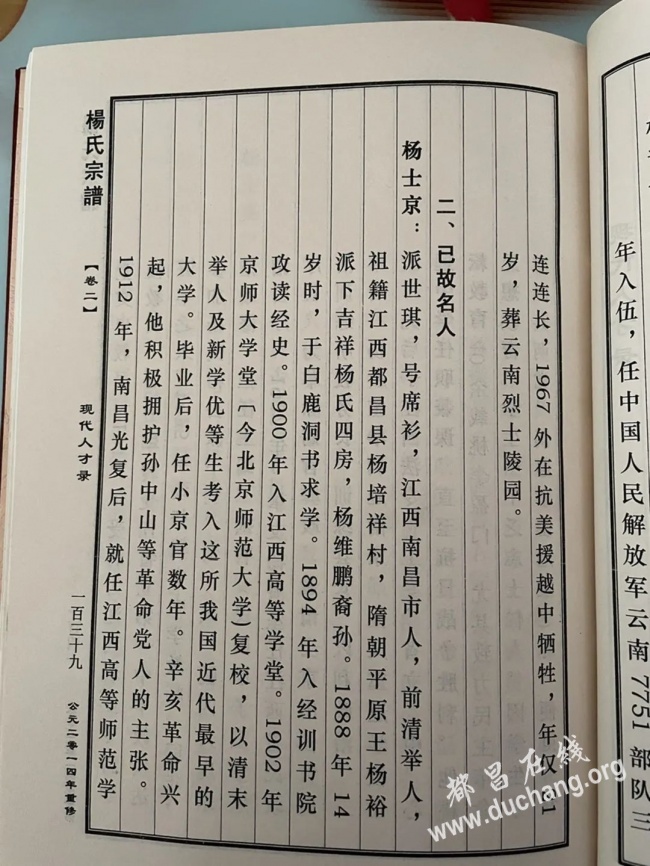 年入伍，任中国人民解放军云南 7751 部队三
连连长，1967 外在抗美援越中牺牲，年仅
岁，葬云南烈士陵园。
二、已故名人
杨士京：派世琪，号席衫，江西南昌市人，前清举人，
祖籍江西都昌县杨培祥村，隋朝平原王杨裕
派下吉祥杨氏四房，杨维鹏裔孙。1888 年 14
岁时，于白鹿洞书求学。1894 年入经训书院
攻读经史。1900 年入江西高等学堂。1902 年
京师大学堂〔今北京师范大学〕复校，以清末
举人及新学优等生考入这所我国近代最早的
大学。毕业后，任小京官数年。辛亥革命兴
起，他积极拥护孙中山等革命党人的主张。
1912 年，南昌光复后，就任江西高等师范学
楊氏宗譜
【卷二】
现代人才录
一百三十九
公元二零一四年重修
都昌在线
www.duchang.org